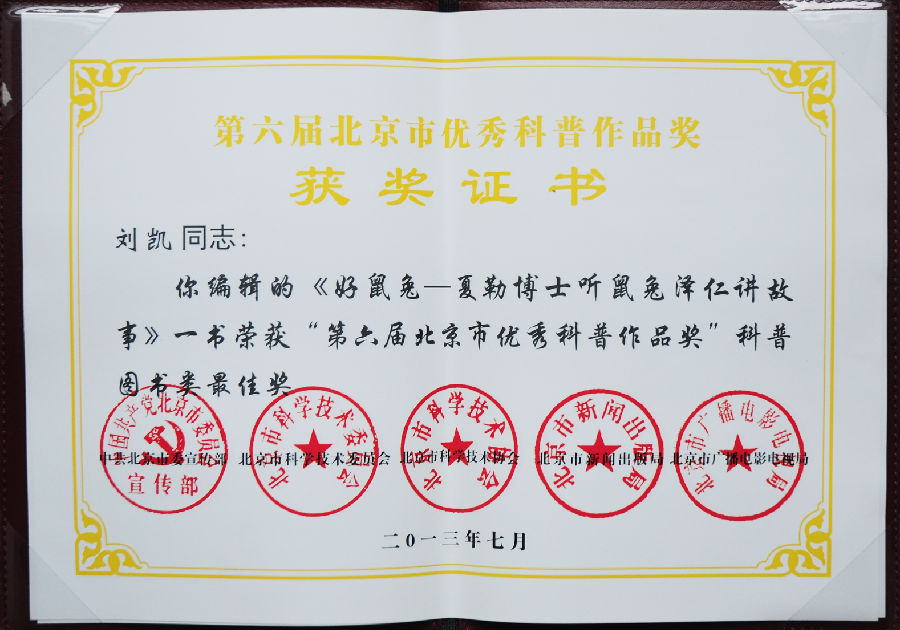 第六届北京市优秀科普作品奖
获奖证书
刘凯 同志：
你编辑的《好鼠兔—夏勒博士听鼠兔泽仁讲故
事》一书荣获“第六届北京市优秀科普作品奖”科普
图书类最佳奖
中国共产党北京市委员会
宣传部
北京市科学技术委员会
北京市科学技术协会
北京市新闻出版局
北京市广播电影电视局
中共北京市委宣传部 北京市科学技术委员会 北京市科学技术协会 北京市新闻出版局 北京市广播电影电视局
二0一三年七月